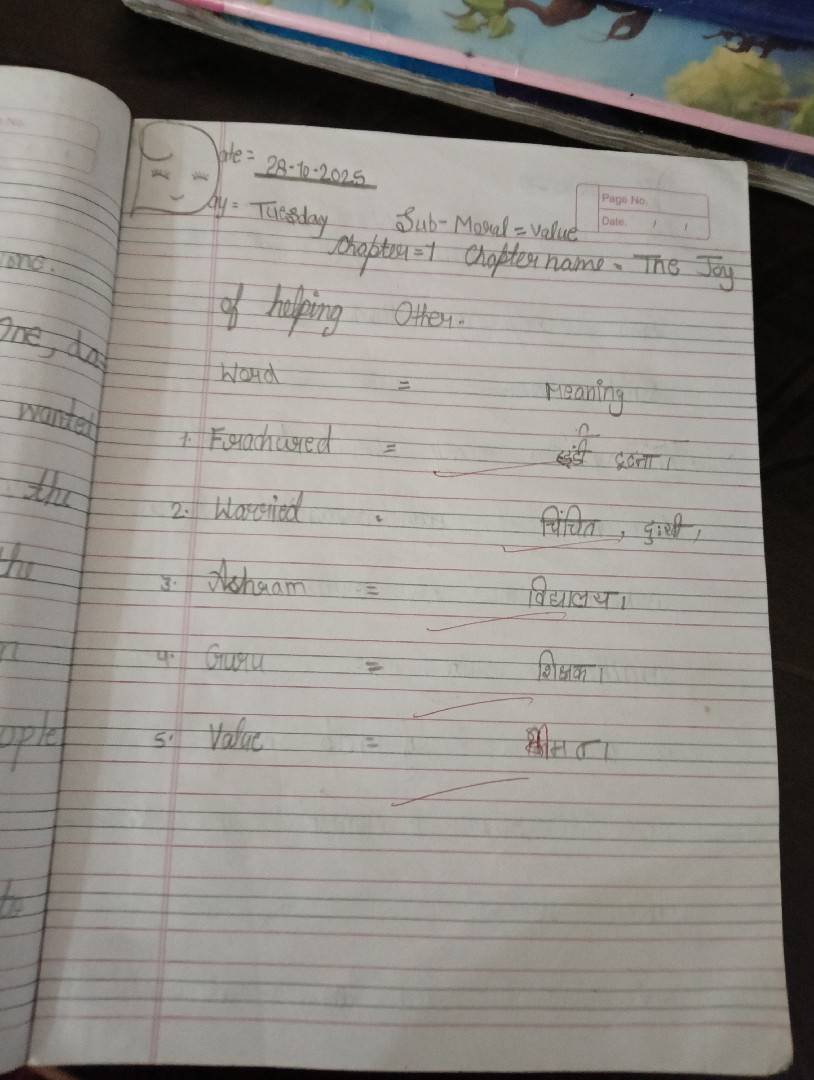 ate = 28-10-2025
Page No.
ay = Tuesday Sub-Moral = value
Date. / /
Chapter = 1 Chapter name = The Joy
of helping Other.
Word = Meaning
1. Frachured = टूटना।
2. Worried . चिंचित, दुःखी,
3. Ashram = विद्यालय।
4. Guru = शिक्षक।
5. Value = कीमत।
one.
One, da
wanted
the
the
n
ople
to